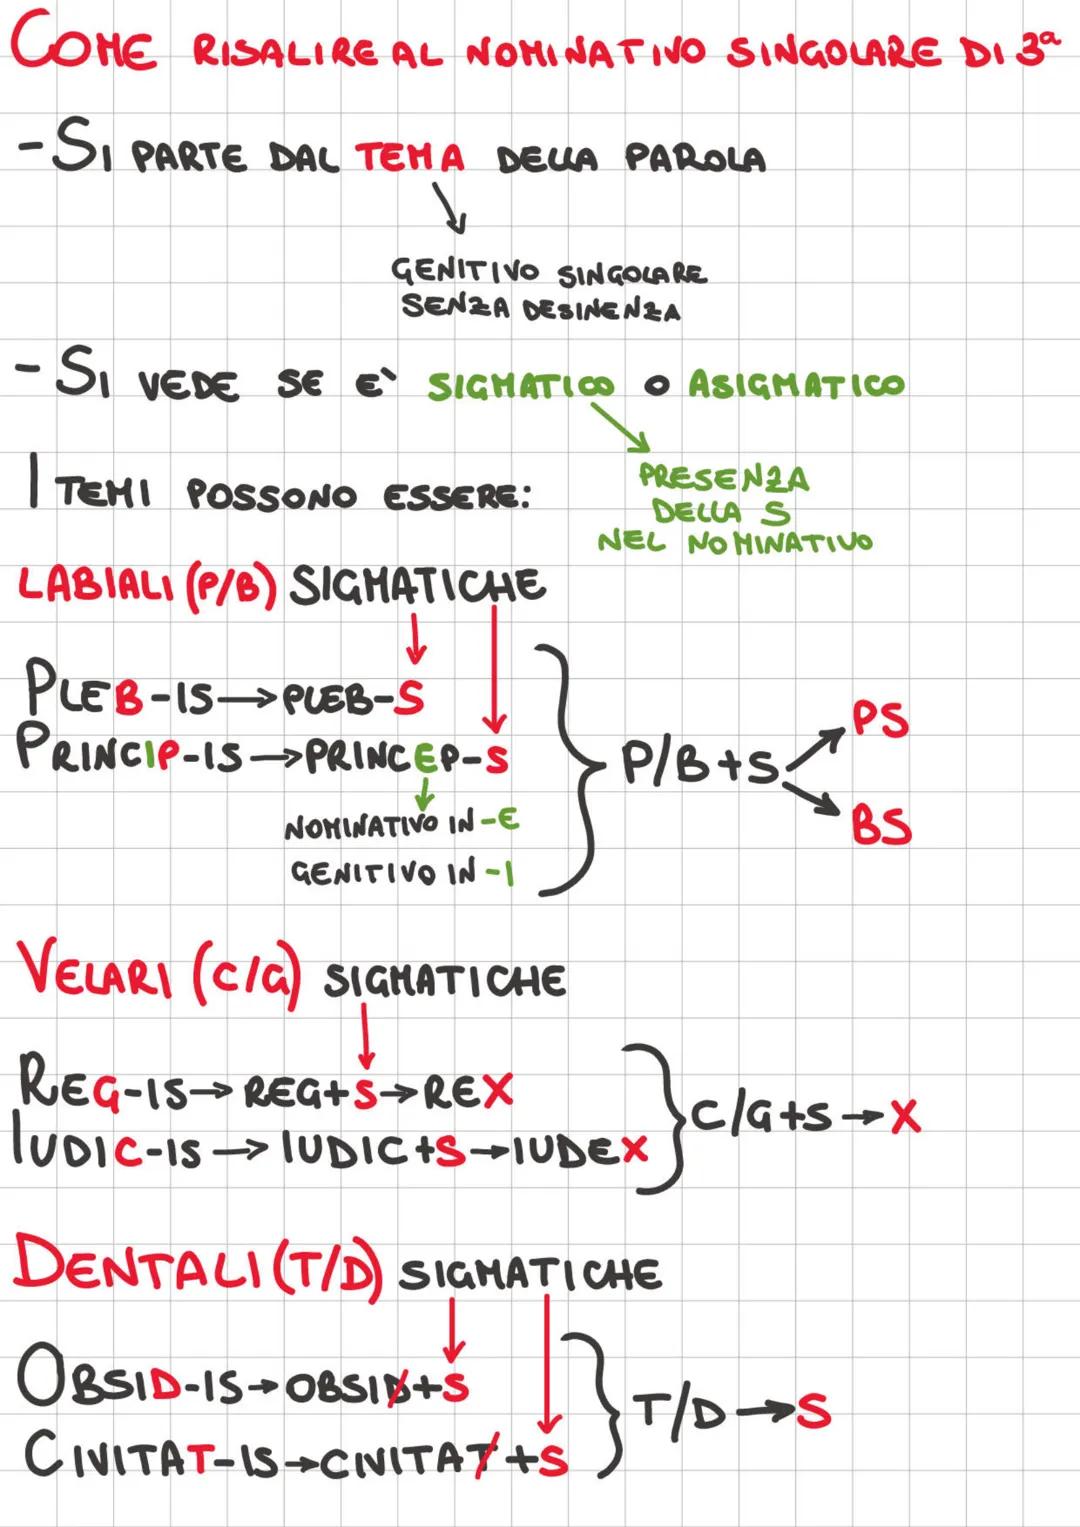 COME RISALIRE AL NOMINATIVO SINGOLARE DI 3ª
- SI PARTE DAL TEMA DELLA PAROLA
GENITIVO SINGOLARE
SENZA DESINENZA
- SI VEDE SE E' SIGMATICO O ASIGMATICO
PRESENZA
DELLA S
NEL NOMINATIVO
I TEMI POSSONO ESSERE:
LABIALI (P/B) SIGMATICHE
PLEB-IS → PLEB-S
PRINCIP-IS → PRINCEP-S
NOMINATIVO IN -E
GENITIVO IN -I
P/B+S
PS
BS
VELARI (C/G) SIGMATICHE
REG-IS → REG+S → REX
IUDIC-IS → IUDIC+S → IUDEX
C/G+S → X
DENTALI (T/D) SIGMATICHE
OBSID-IS → OBSID+S
CIVITAT-IS → CIVITAT+S
T/D → S